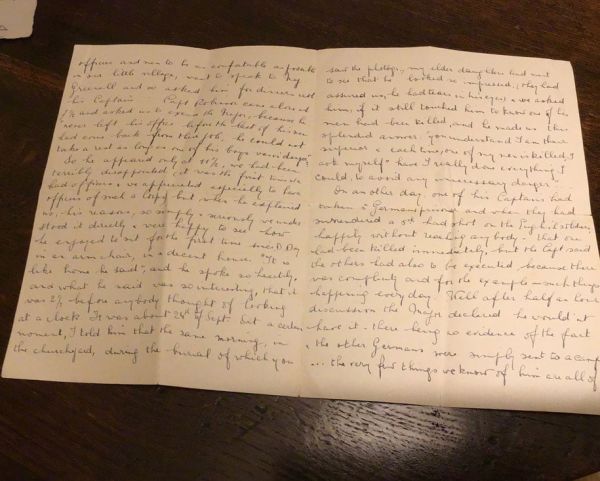 officers and men to be as comfortable as possible
in our little village, went to speak to Maj
Greenall and we asked him for dinner with
his Captain. Capt Robinson came alone at
and asked us to excuse the Major, because he
never left his office before the last of his men
had come back from the job, he could not
take a rest as long as one of his boys was in danger"
So he appeared only at 11¼, we had been
terribly disappointed, it was the first time we
had officers, & we appreciated especially to have
officers of such a Corps but when he explained
us, his reasons, so simply & seriously we under
stood it directly & were happy to see how
he enjoyed to sit for the first time since D Day
in an arm-chair, in a decent house. "It is
like home" he said; and he spoke so heartily,
and what he said was so interesting, that it
was 2½ before anybody thought of looking
at a clock. It was about 28th of Sept. At a certain
moment, I told him that the same morning, in
the churchyard, during the burial of which you
saw the photogr., my elder daughters had went
to see that he looked so impressed; they had
assured us, he had tears in his eyes & we asked
him, if it still touched him to know one of his
men had been killed, and he made us this
splendid answer: "you understand I am their
superior & each time, one of my men is killed, I
ask myself" have I really done everything I
could, to avoid any unnecessary danger.
On another day, one of his Captains had
taken a German, and when they had
surrendered a 5th had shot on the Engl. soldiers,
happily without reaching anybody - that one
had been killed immediately, but the Capt said
the others had also to be executed, because there
was complicity and for the example - such things
happening every day. Well after half an hour
discussion the Major declared he would not
have it - there being no evidence of the fact
& the other Germans were simply sent to a camp
... the very few things we know of him are all of